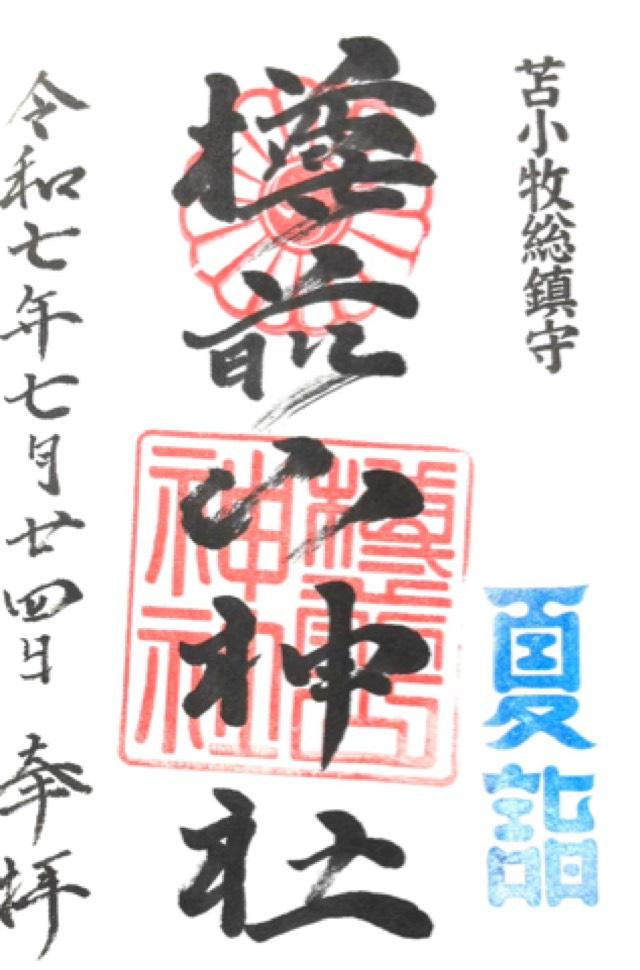 苫小牧総鎮守
夏詣
樽前山神社
樽前山
神社
令和七年七月廿四日 奉拝